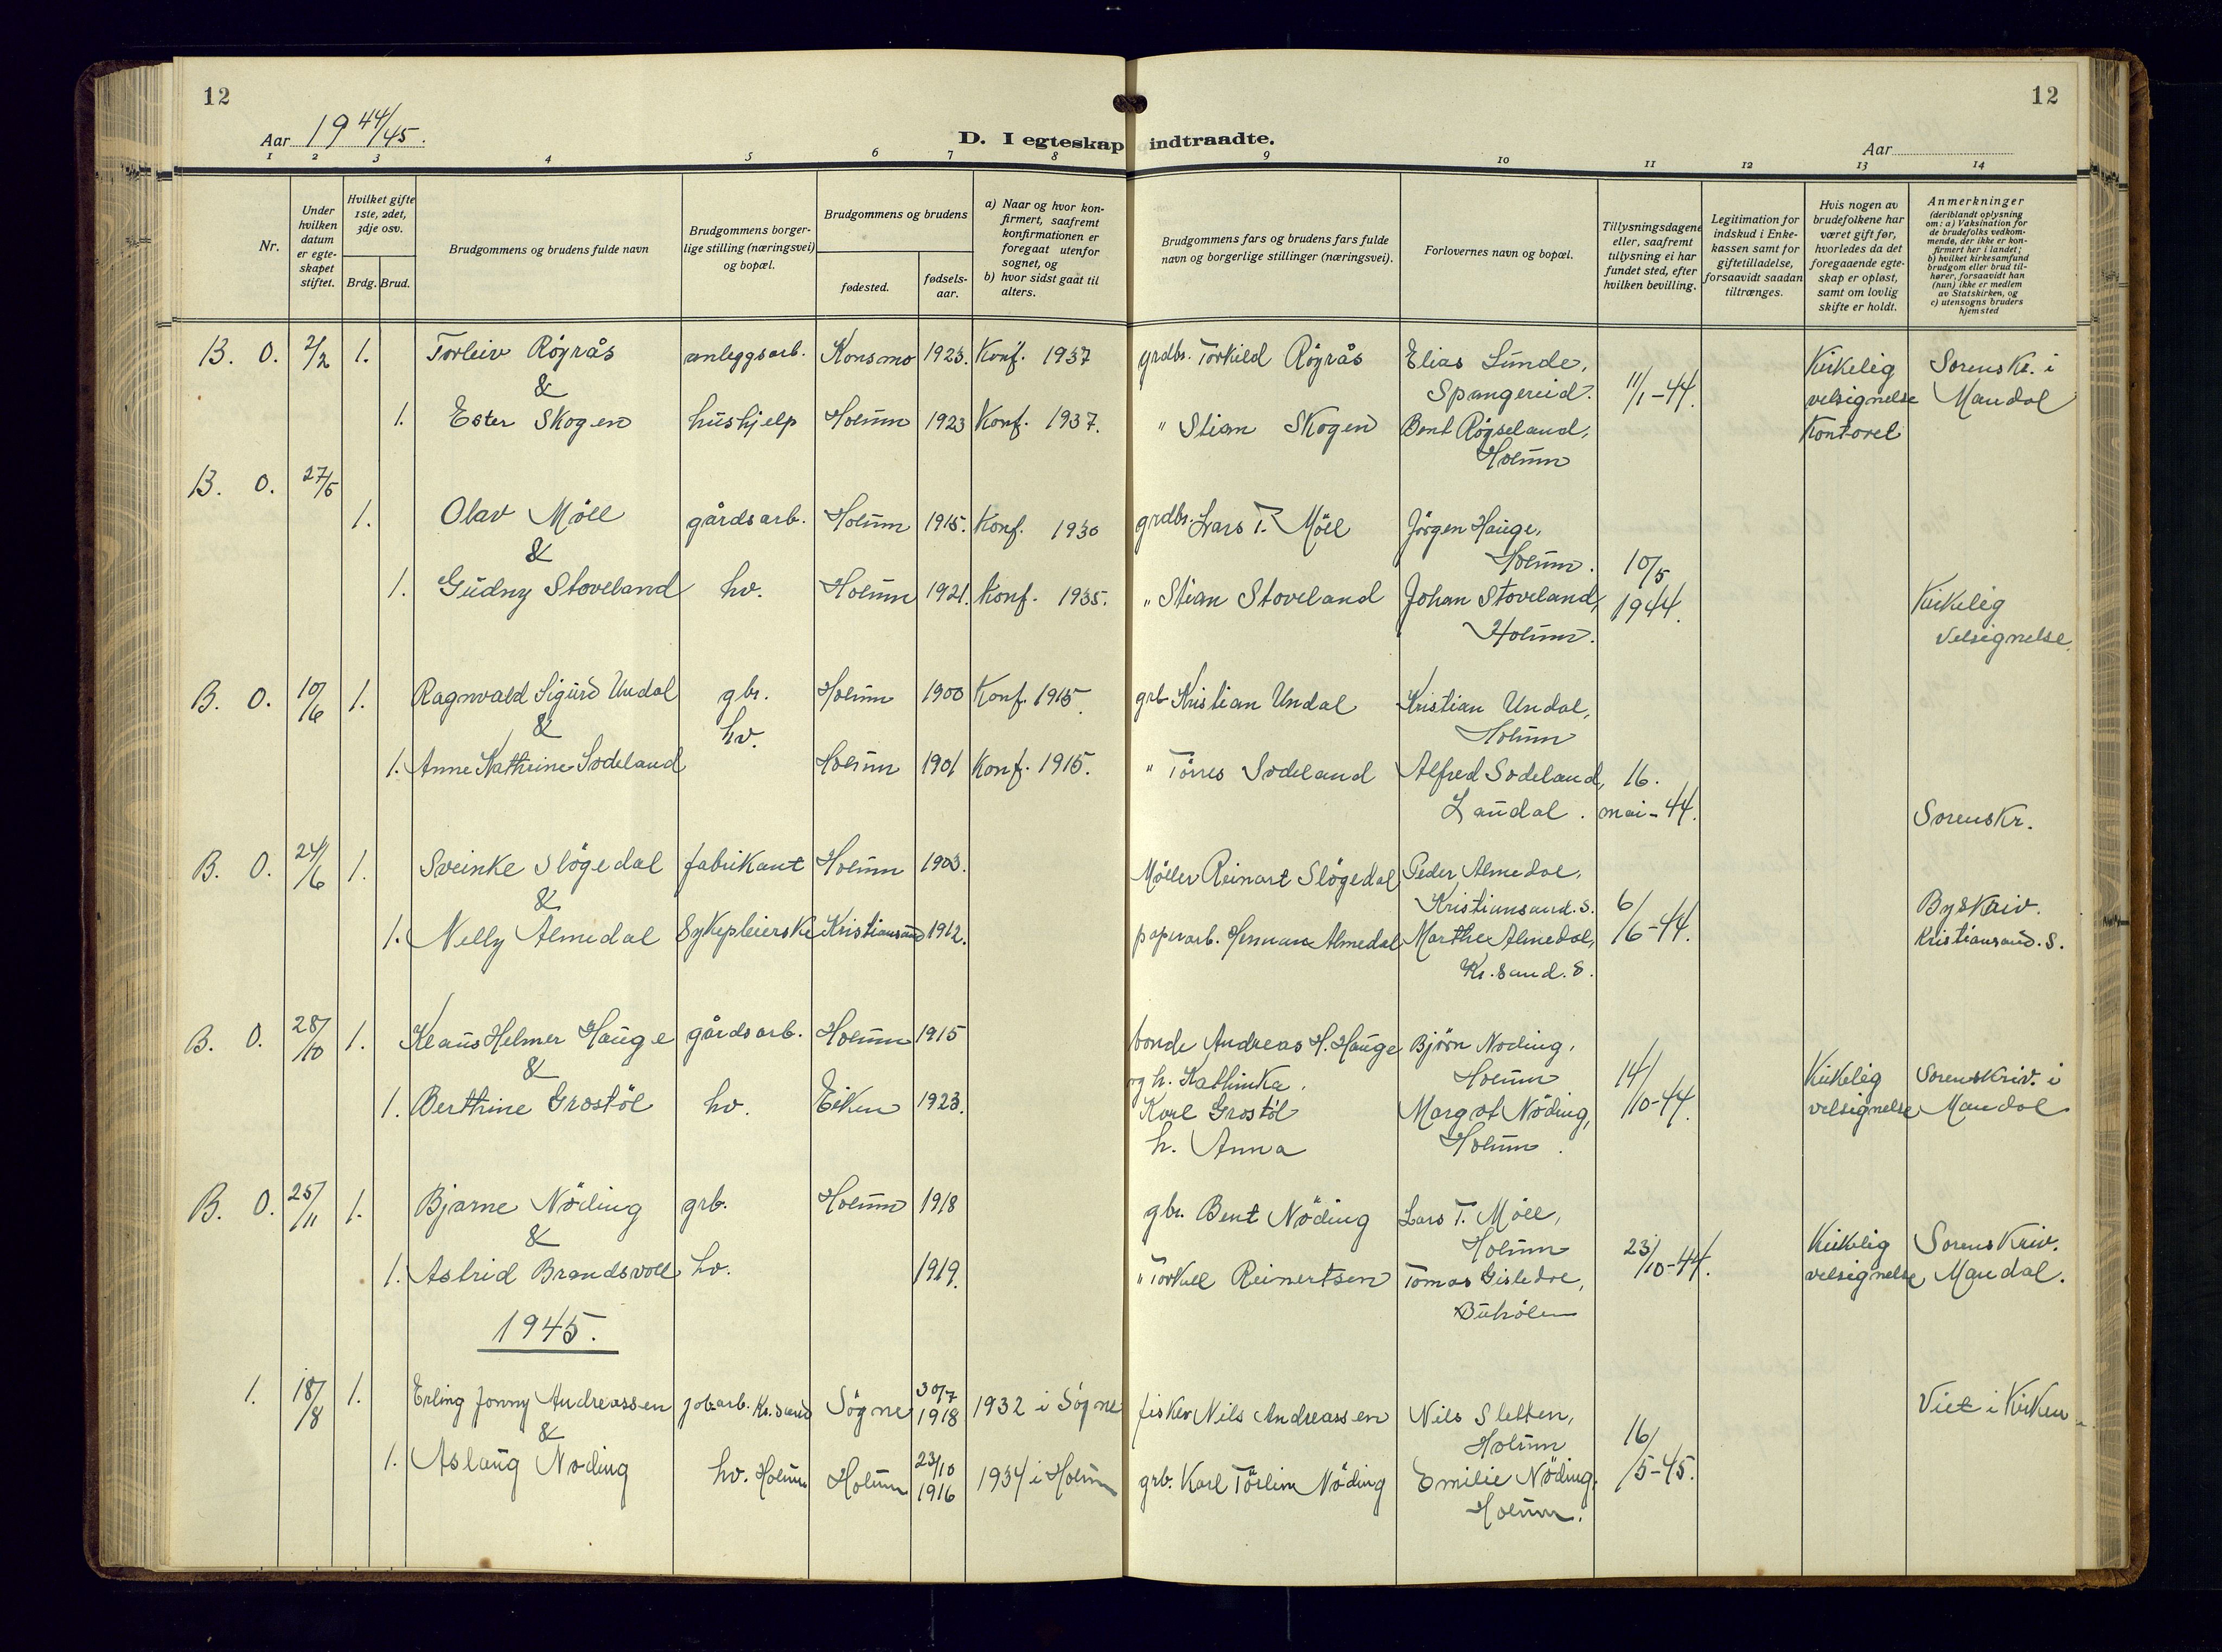 12
12
Aar 19 44/45.
D. I egteskap indtraadte.
Aar
1 2 3 4 5 6 7 8 9 10 11 12 13 14
Nr.
Under hvilken datum er egteskapet stiftet.
Hvilket gifte 1ste, 2det, 3dje osv.
Brdg. Brud.
Brudgommens og brudens fulde navn
Brudgommens borgerlige stilling (næringsvei) og bopæl.
Brudgommens og brudens
fødested.
fødselsaar.
a) Naar og hvor konfirmert, saafremt konfirmationen er foregaat utenfor sognet, og
b) hvor sidst gaat til alters.
Brudgommens fars og brudens fars fulde navn og borgerlige stillinger (næringsvei).
Forlovernes navn og bopæl.
Tillysningsdagene eller, saafremt tillysning ei har fundet sted, efter hvilken bevilling.
Legitimation for indskud i Enkekassen samt for giftetilladelse, forsaavidt saadan tiltrænges.
Hvis nogen av brudefolkene har været gift før, hvorledes da det foregaaende egteskap er opløst, samt om lovlig skifte er holdt.
Anmerkninger
(deriblandt oplysning om: a) Vaksination for de brudefolks vedkommende, der ikke er konfirmert her i landet;
b) hvilket kirkesamfund brudgom eller brud tilhører, forsaavidt han (hun) ikke er medlem av Statskirken, og
c) utensogns bruders hjemsted
B. O. 2/2 1. Torleiv Röyrås anleggsarb. Konsmo 1923. Konf. 1937 grdbr. Torkild Röyrås Elias Lunde, Kirkelig Sorenskr. i
& Spangereid. 11/1-44. velsignelse Mandal
1. Ester Skogen hushjelp Holum 1923 Konf. 1937. " Stian Skogen Bent Röyseland, Kontoret
Holum
B. O. 27/5
1. Olav Möll gårdsarb. Holum 1915. Konf. 1930 grdbr. Lars T. Möll Jörgen Hauge,
& Holum. 10/5
1. Gudny Stoveland hv. Holum 1921. Konf. 1935. " Stian Stoveland Johan Stoveland, 1944. Kirkelig
Holum. velsignelse.
B. O. 10/6 1. Ragnvald Sigurd Undal gbr. Holum 1900 Konf. 1915. grb Kristian Undal Kristian Undal,
& hv. Holum
1. Anne Kathrine Sodeland Holum 1901 Konf. 1915. " Törres Sodeland Alfred Sodeland, 16.
Laudal. mai-44. Sorenskr.
B. O. 24/6 1. Sveinke Slögedal fabrikant Holum 1903. Möller Reinart Slögedal Peder Almedal,
& Kristiansand. S. 6/6-44. Byskriv.
1. Nelly Almedal Sykepleierske Kristiansand 1912. papirarb. Herman Almedal Marthe Almedal, Kristiansand. S.
Kr. sand. S.
B. O. 28/10 1. Klaus Helmer Hauge gårdsarb. Holum 1915 bonde Andreas H. Hauge Björn Nöding,
& og h. Kathinka. Holum 14/10-44 Kirkelig Sorenskriv. i
1. Berthine Grostöl hv. Eiken 1923. Karl Grostöl Margot Nöding, velsignelse Mandal
h. Anna Holum.
B. O. 25/11 1. Bjarne Nöding grb. Holum 1918 gbr. Bent Nöding Lars T. Möll,
& Holum 23/10-44. Kirkelig Sorenskriv.
1. Astrid Brandsvoll hv. 1919. " Torkel Reinertsen Tomas Gisledal, velsignelse Mandal.
Buhölen
1945.
1. 18/8 1. Erling Jonny Andreassen Kr. sand Sögne 30/7 1918 1932 i Sögne fisker Nils Andreassen Nils Sletten, Viet i Kirken
& Holum 16/5-45.
1. Aslaug Nöding hv. Holum Holum 23/10 1916 1934 i Holum grb. Karl Törlim Nöding Emilie Nöding.
Holum.